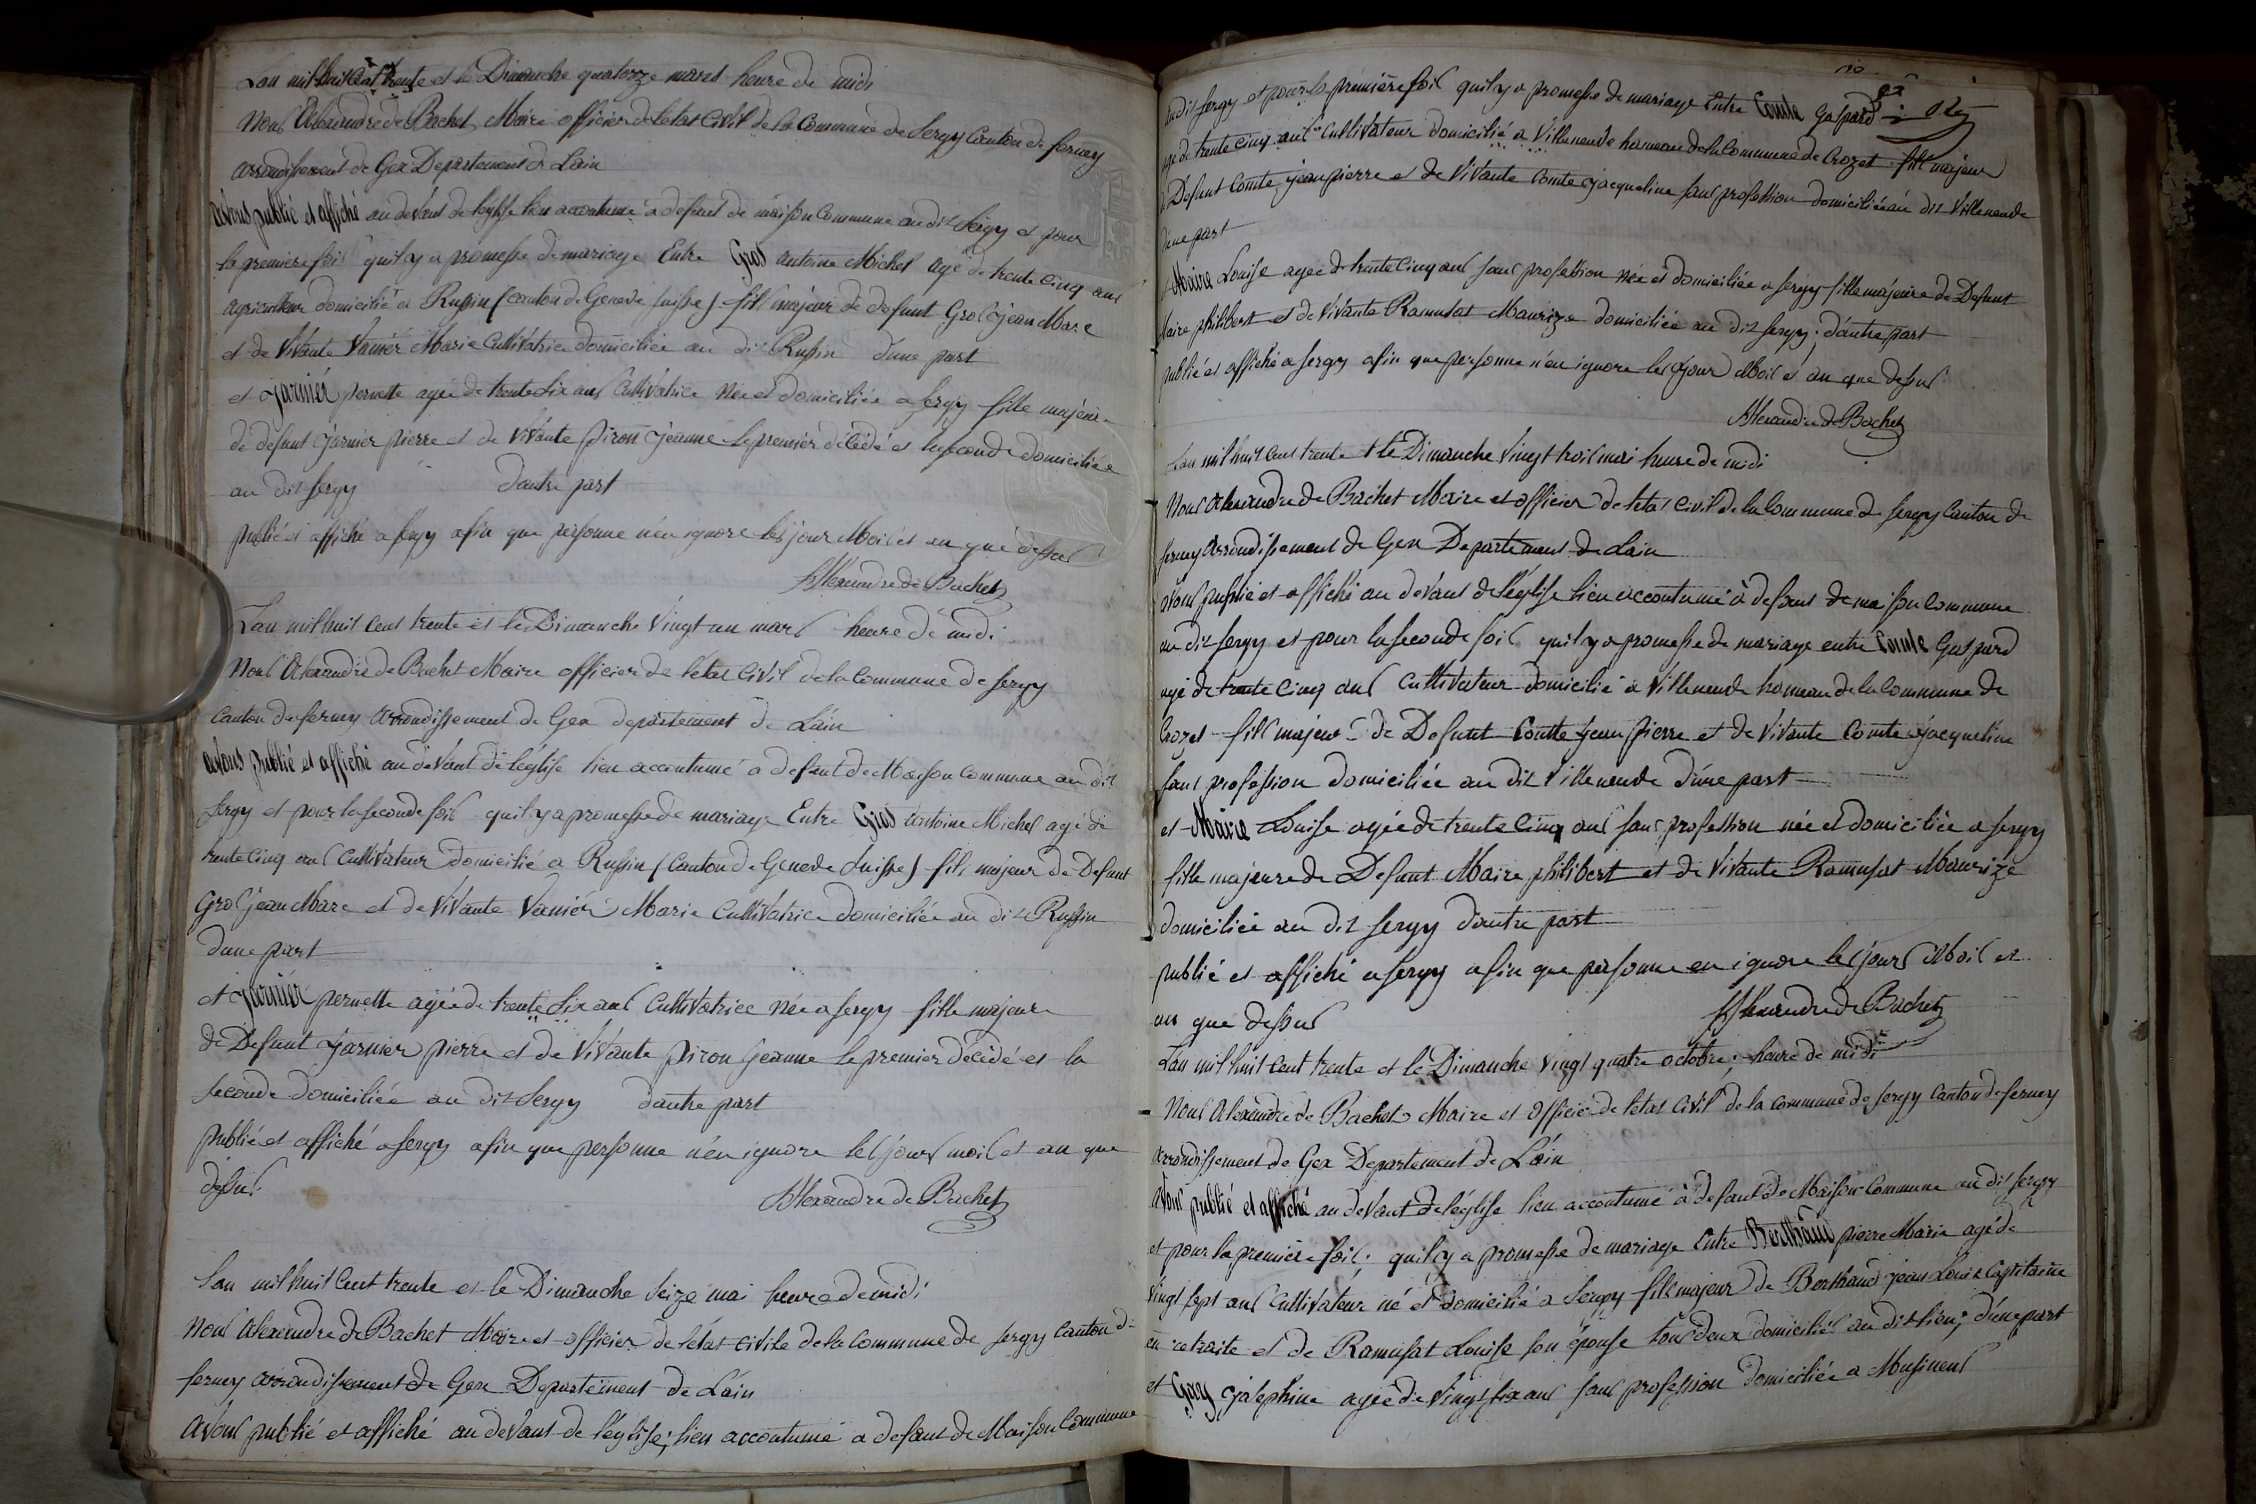 Lan mil huit Cent trente et le Dimanche quatorze mars heure de midi
Nous Alexandre de Bachet Maire officier de letat Civil de la Commune de Sergy Canton de ferney
arrondissement de Gex Departement de Lain
avons publié et affiché au devant de leglise lieu accoutumé a defaut de maison Commune au dit Sergy et pour
la premiere fois quil y a promesse de mariage Entre Gros antoine Michel agé de trente cinq ans
agriculteur domicilié a Russin (canton de Geneve suisse) fils majeur de defunt Gros jean Marc
et de Vivante Vanier Marie Cultivatrice domiciliée au dit Russin d'une part
et Jarnier pernette agée de trente six ans Cultivatrice Née et domiciliée a Sergy fille majeure
de defunt Jarnier pierre et de Vivante piron Jeanne le premier décédé et la seconde domiciliée
au dit Sergy d'autre part
publié et affiché a Sergy afin que personne n'en ignore les jour Mois et an que dessus
Alexandre de Bachet
Lan mil huit Cent trente et le Dimanche Vingt un mars heure de midi
Nous Alexandre de Bachet Maire officier de letat Civil de la Commune de Sergy
Canton de ferney arrondissement de Gex departement de Lain
avons publié et affiché au devant de léglise lieu accoutumé a defaut de Maison Commune au dit
Sergy et pour la seconde fois quil y a promesse de mariage Entre Gros antoine Michel agé de
trente cinq ans Cultivateur domicilié a Russin (Canton de Geneve Suisse) fils majeur de Defunt
Gros jean Marc et de Vivante Vanier Marie Cultivatrice domiciliée au dit Russin
dune part
et Jarnier pernette agée de trente six ans Cultivatrice Née a Sergy fille majeure
de Defunt Jarnier pierre et de Vivante piron Jeanne le premier décédé et la
seconde domiciliée au dit Sergy d'autre part
publié et affiché a Sergy afin que personne n'en ignore les jours mois et an que
dessus.
Alexandre de Bachet
Lan mil huit Cent trente et le Dimanche Seize mai heure de midi
Nous Alexandre de Bachet Maire et officier de létat civile de la Commune de Sergy Canton de
ferney arrondissement de Gex Departement de Lain
avons publié et affiché au devant de l'église; lieu accoutumé a defaut de Maison Commune
audit Sergy et pour la premiere fois quil y a promesse de mariage Entre Comte Gaspard
agé de trente cinq ans Cultivateur domicilié a Villeneuve hameau de la Commune de Crozet fils majeur
de Defunt Comte jean pierre et de Vivante Comte jacqueline sans profession domiciliée au dit Villeneuve
d'une part
et Maire Louise agée de trente Cinq ans sans profession née et domiciliée a Sergy fille majeure de Defunt
Maire philibert et de Vivante Ramusat Maurize domiciliée au dit Sergy; d'autre part
publié et affiché a Sergy afin que personne n'en ignore les jour Mois et an que dessus
Alexandre de Bachet
Lan mil huit Cent trente et le Dimanche Vingt trois mai heure de midi
Nous Alexandre de Bachet Maire et officier de letat Civil de la Commune de Sergy Canton de
ferney arrondissement de Gex Departement de Lain
avons publié et affiché au devant de l'église lieu accoutumé à defaut de maison Commune
au dit Sergy et pour la seconde fois quil y a promesse de mariage entre Comte Gaspard
agé de trente Cinq ans Cultivateur domicilié a Villeneuve hameau de la Commune de
Crozet fils majeur de Defunt Comte Jean pierre et de Vivante Comte jacqueline
sans profession domiciliée au dit Villeneuve d'une part
et Maire Louise agée de trente Cinq ans sans profession née et domiciliée a Sergy
fille majeure de Defunt Maire philibert et de Vivante Ramusat Maurize
domiciliée au dit Sergy d'autre part
publié et affiché a Sergy afin que personne en ignore les jours Mois et
an que dessus
Alexandre de Bachet
Lan mil huit Cent trente et le Dimanche Vingt quatre octobre; heure de midi
Nous Alexandre de Bachet Maire et officié de letat Civil de la commune de Sergy Canton de ferney
arrondissement de Gex Departement de Lain
avons publié et affiché au devant de léglise lieu accoutumé à defaut de Maison Commune au dit Sergy
et pour la premiere fois; quil y a promesse de mariage Entre Berthaud pierre Marie agé de
Vingt sept ans Cultivateur né et domicilié a Sergy fils majeur de Berthaud jean Louis Capitaine
en retraite et de Ramusat Louise son épouse tous deux domiciliés au dit lieu; d'une part
et Gay joséphine agée de Vingt six ans sans profession domiciliée a Musinens